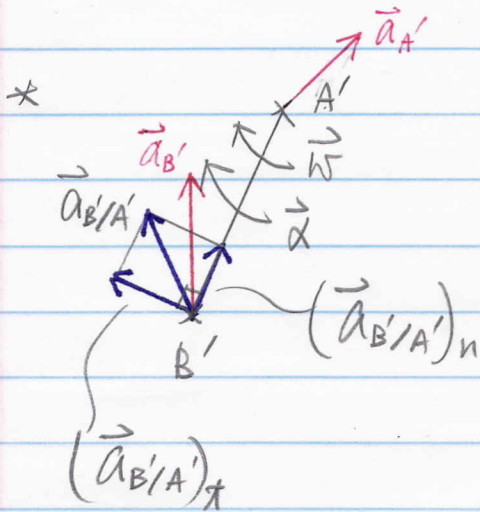 a⃗_A'
*
A'
a⃗_B'
w⃗
a⃗_B'/A'
α⃗
(a⃗_B'/A')_n
B'
(a⃗_B'/A')_t